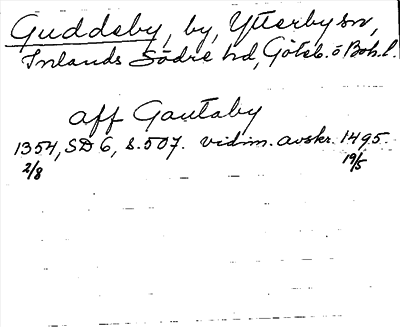 Guddeby, by, Ytterby sn,
Inlands Södre hd, Göteb. o Boh. l.
aff Gautaby
1354, SD 6, s. 507. vidim. avskr. 1495.
2/8 19/5